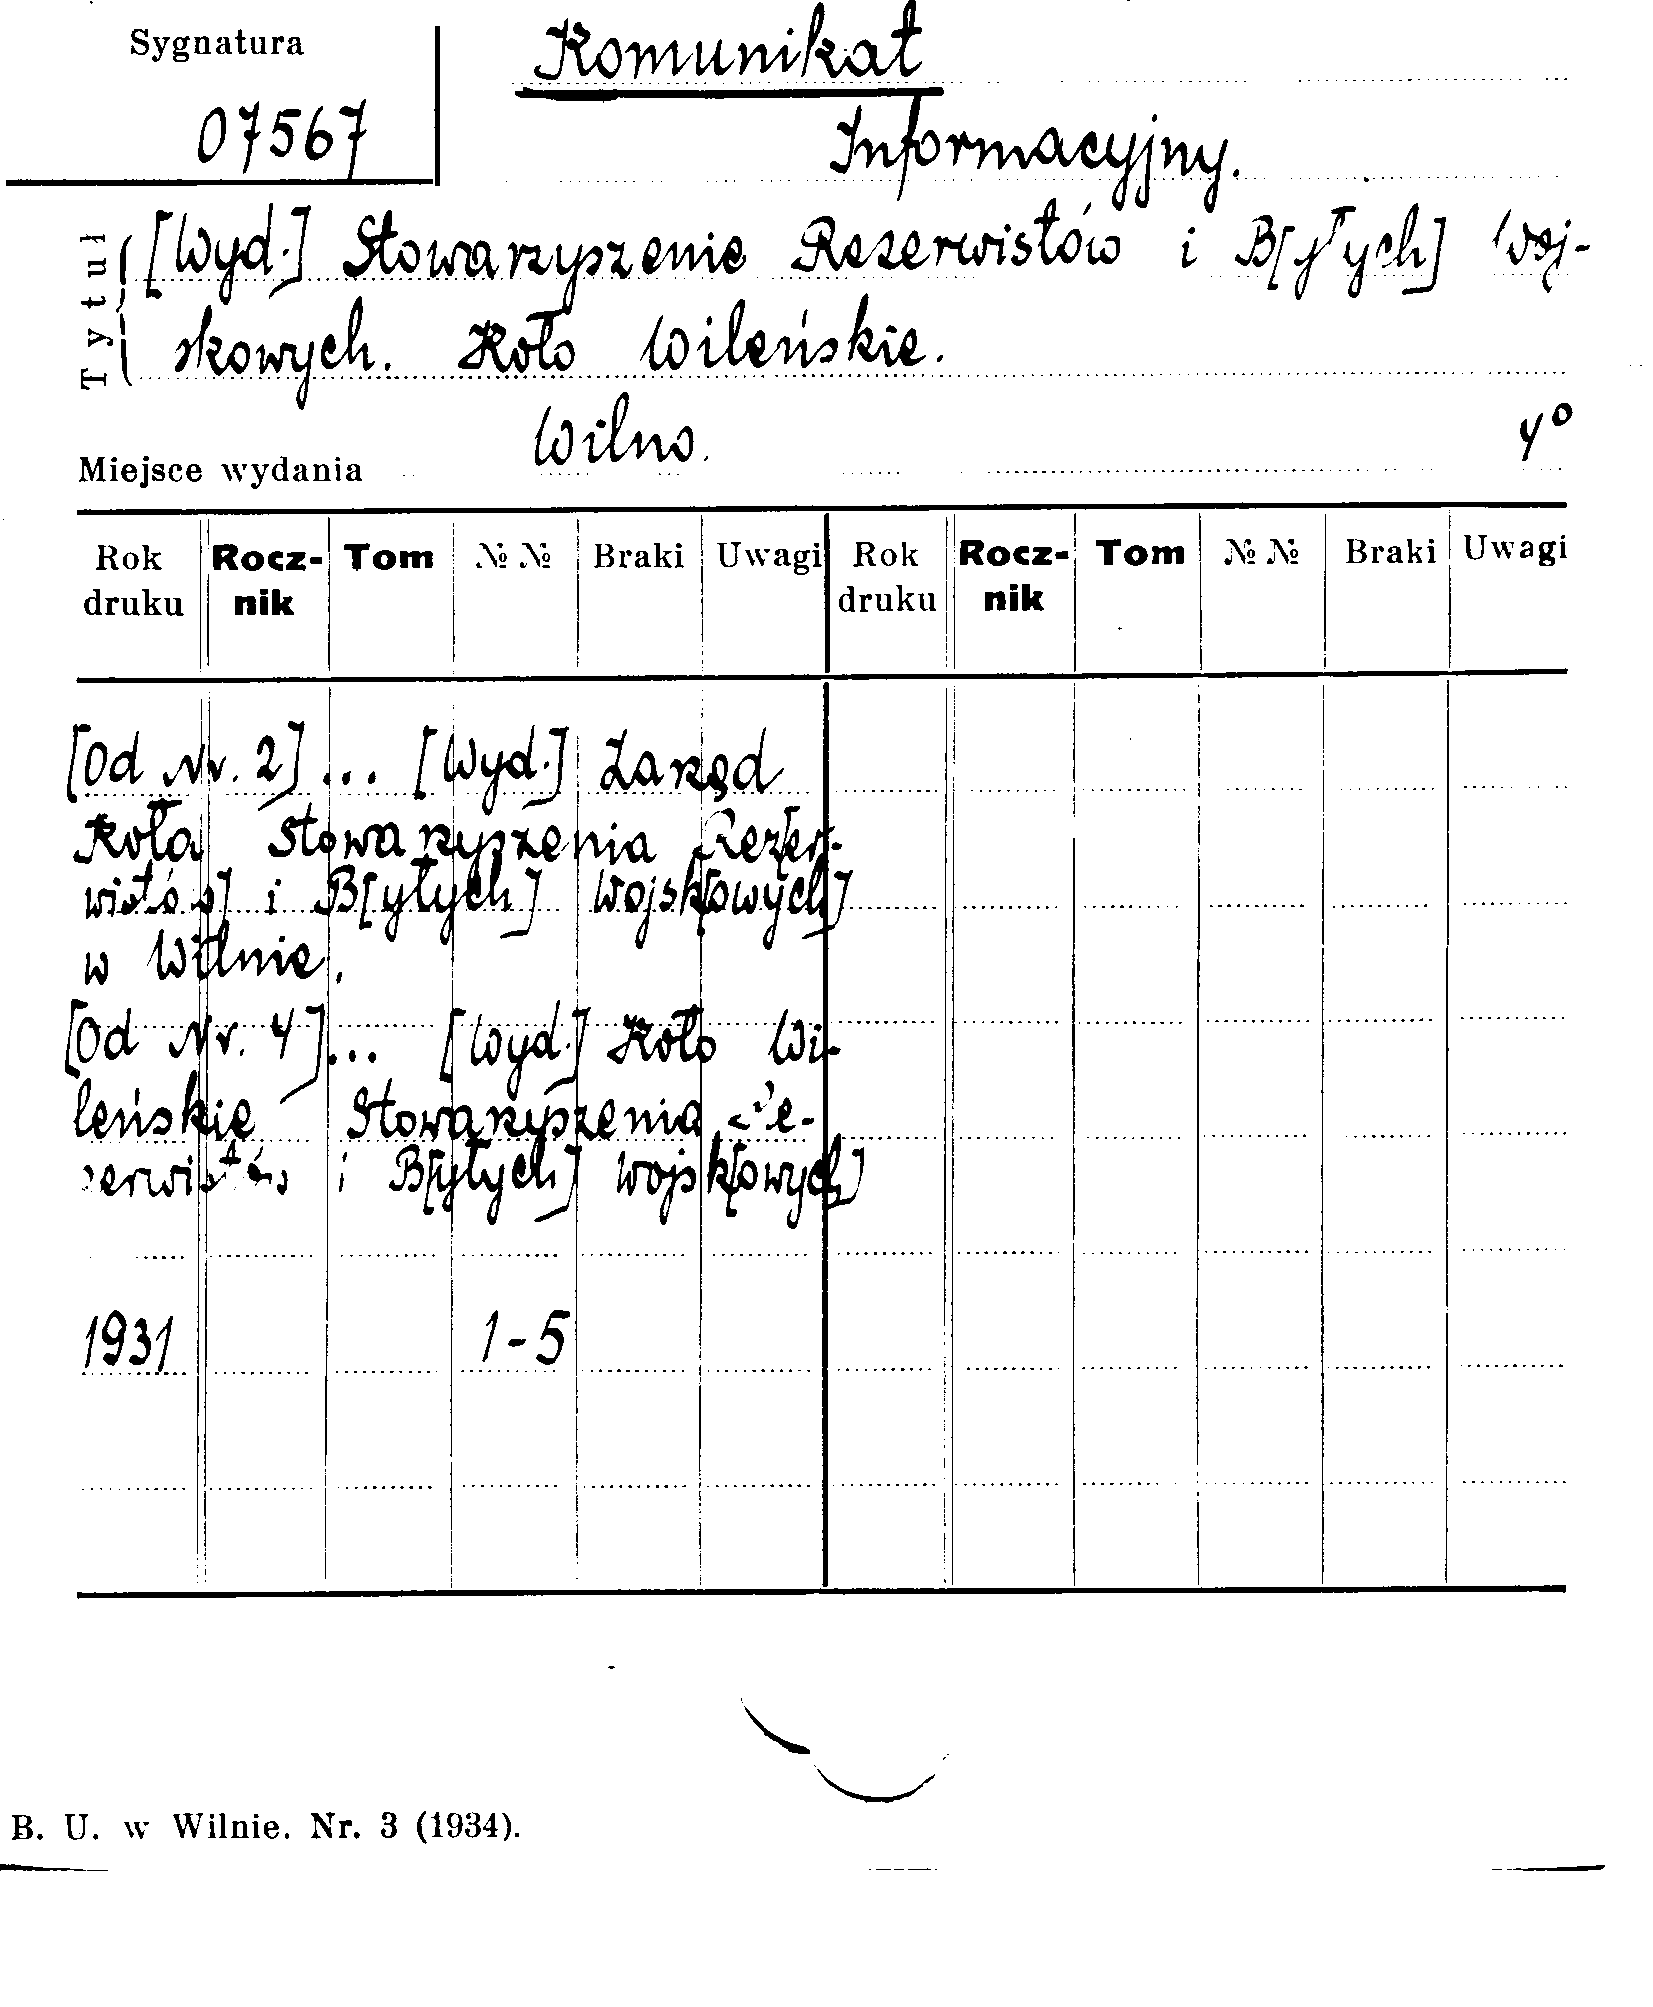 Sygnatura
07567
Komunikat
Informacyjny.
Tytuł
[Wyd.] Stowarzyszenie Rezerwistów i B[yłych] Woj-
skowych. Koło Wileńskie.
Miejsce wydania Wilno. 4°
Rok druku Rocz-nik Tom №№ Braki Uwagi Rok druku Rocz-nik Tom №№ Braki Uwagi
[Od Nr. 2] ... [Wyd.] Zarząd
Koła Stowarzyszenia Rez[er-
wistów] i B[yłych] Wojsk[owych]
w Wilnie.
[Od Nr. 4]... [Wyd.] Koło Wi-
leńskie Stowarzyszenia Re-
zerwistów i B[yłych] Wojsk[owych]
1931 1-5
B. U. w Wilnie. Nr. 3 (1934).